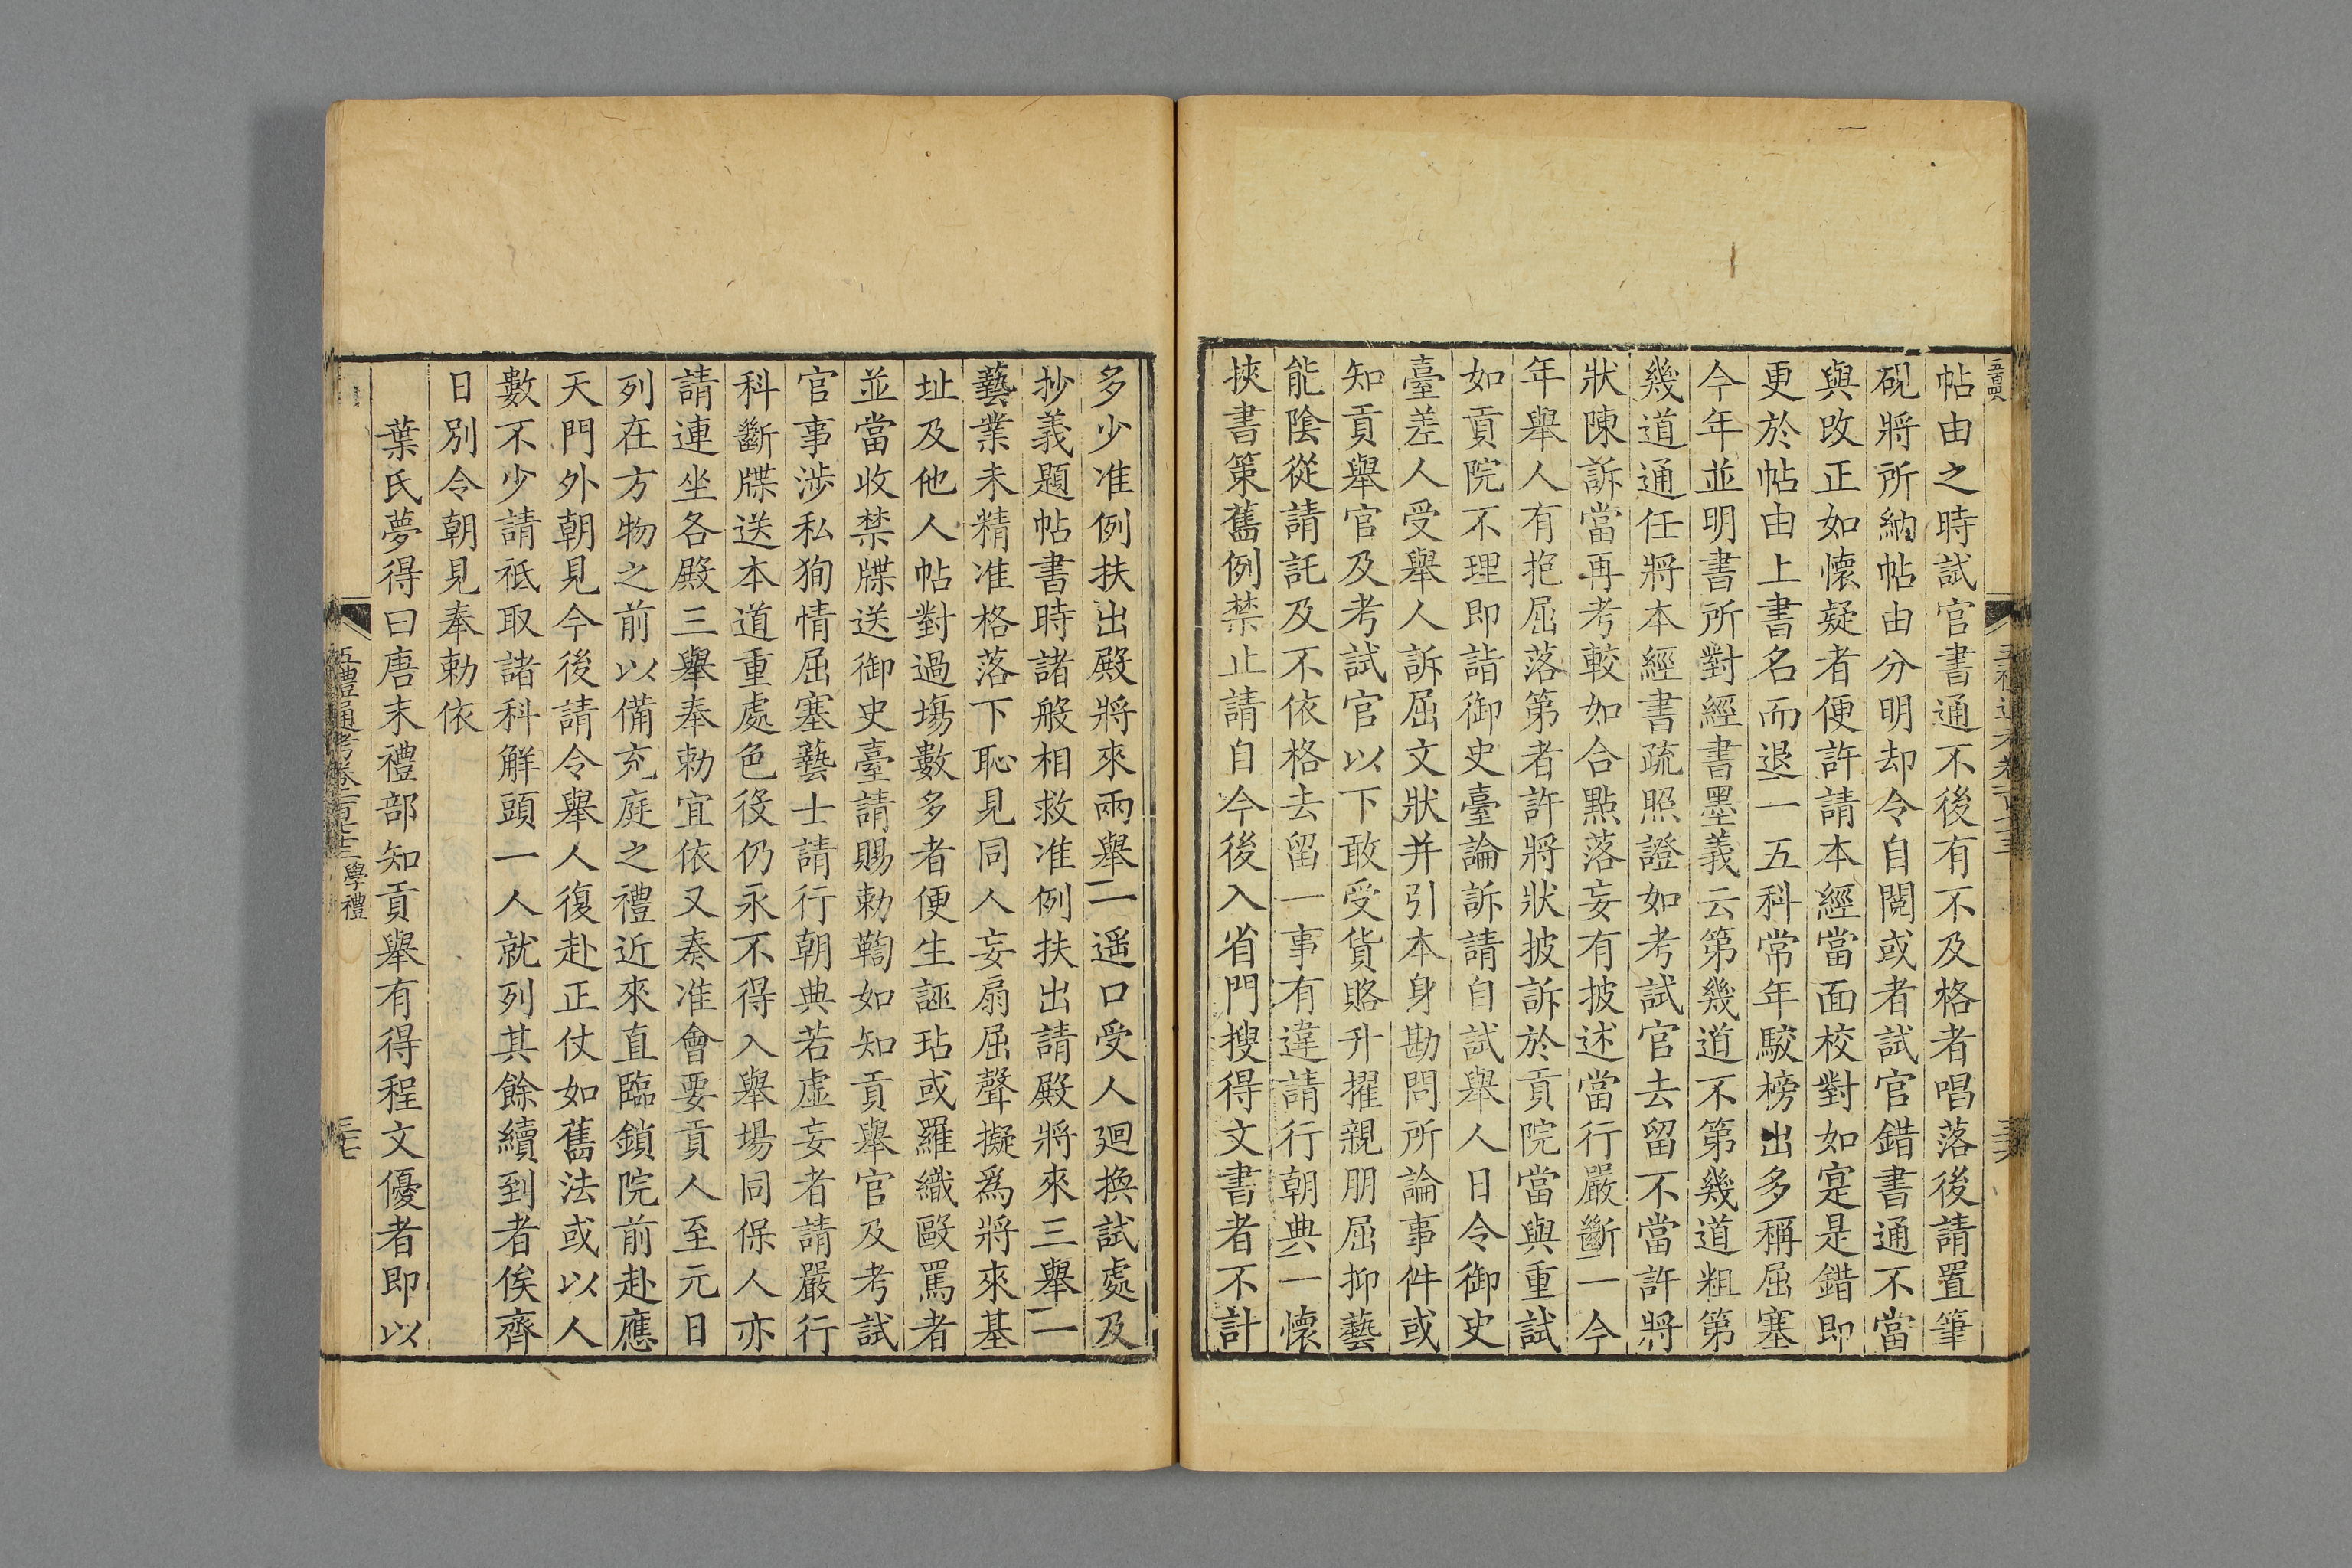 帖由之時試官書通不後有不及格者唱落後請置筆
硯將所納帖由分明却令自閱或者試官錯書通不當
與改正如懷疑者便許請本經當面校對如寔是錯即
更於帖由上書名而退一五科常年駮榜出多稱屈塞
今年並明書所對經書墨義云第幾道不第幾道粗第
幾道通任將本經書疏照證如考試官去留不當許將
狀陳訴當再考較如合點落妄有披述當行嚴斷一今
年舉人有抱屈落第者許將狀披訴於貢院當與重試
如貢院不理即詣御史臺論訴請自試舉人日令御史
臺差人受舉人訴屈文狀并引本身勘問所論事件或
知貢舉官及考試官以下敢受貨賂升擢親朋屈抑藝
能陰從請託及不依格去留一事有違請行朝典一懷
挾書策舊例禁止請自今後入省門搜得文書者不計
多少准例扶出殿將來兩舉一遥口受人廻換試處及
抄義題帖書時諸般相救准例扶出請殿將來三舉一
藝業未精准格落下恥見同人妄扇屈聲擬為將來基
址及他人帖對過場數多者便生誣玷或羅織毆罵者
並當收禁牒送御史臺請賜勅鞫如知貢舉官及考試
官事涉私狥情屈塞藝士請行朝典若虛妄者請嚴行
科斷牒送本道重處色役仍永不得入舉場同保人亦
請連坐各殿三舉奉勅宜依又奏准會要貢人至元日
列在方物之前以備充庭之禮近來直臨鎖院前赴應
天門外朝見今後請令舉人復赴正仗如舊法或以人
數不少請祗取諸科解頭一人就列其餘續到者俟齊
日別令朝見奉勅依
葉氏夢得曰唐末禮部知貢舉有得程文優者即以
五禮通考卷一百七十三 學禮
三七